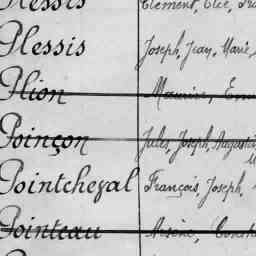 Plessis Clément, Elie,
Plessis Joseph, Jean, Marie,
Plion Maurice,
Poinçon Jules, Joseph, Augustin
Pointcheval François, Joseph,
Pointeau Arsène,